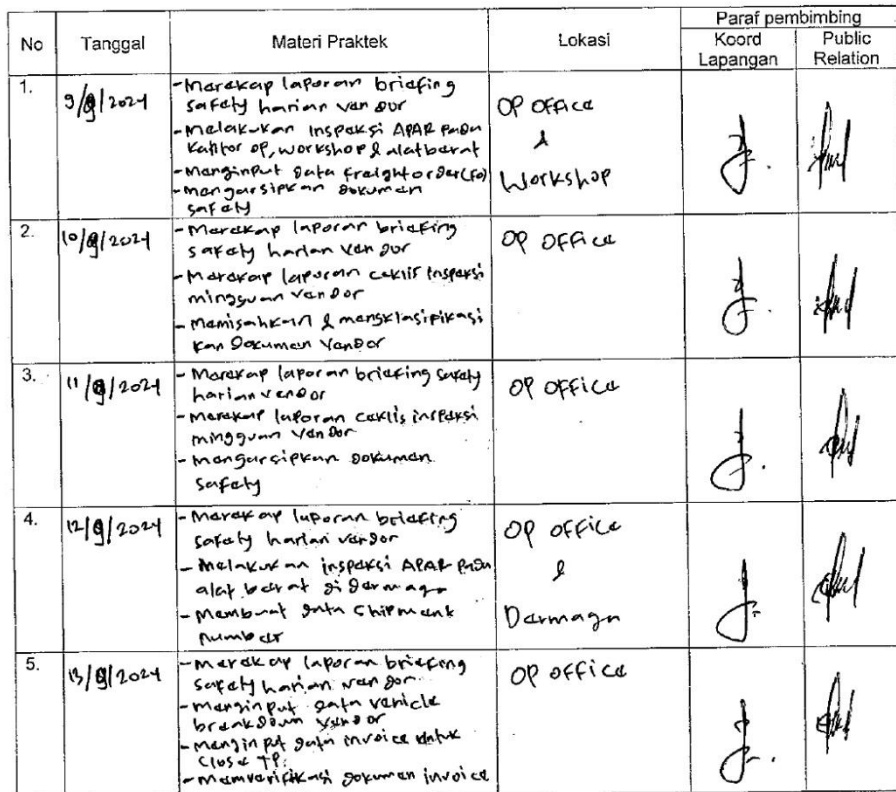 No Tanggal Materi Praktek Lokasi Paraf pembimbing
Koord Lapangan Public Relation
1. 9/9/2024
-Merekap laporan briefing
safety harian vendor
-Melakukan Inspeksi APAR pada
kantor OP, workshop & alat berat
-Menginput data freight order (Fo)
-mengarsipkan dokumen
safety
OP OFFice
&
Workshop
2. 10/9/2024
-Merekap laporan briefing
safety harian vendor
-Merekap laporan ceklis inspeksi
mingguan vendor
-Memisahkan & mengklasipikasi
kan Dokumen Vendor
OP OFFice
3. 11/9/2024
-Merekap laporan briefing safety
harian vendor
-Merekap laporan ceklis inspeksi
mingguan vendor
-mengarsipkan dokumen
safety
OP OFFice
4. 12/9/2024
-Merekap laporan briefing
safety harian vendor
-Melakukan inspeksi APAR pada
alat berat di dermaga
-Membuat data Chipment
number
OP OFFice
&
Dermaga
5. 13/9/2024
-Merekap laporan briefing
safety harian vendor
-menginput data vehicle
breakdown vendor
-menginput data invoice untuk
Close TP.
-memverifikasi dokumen invoice
OP OFFice